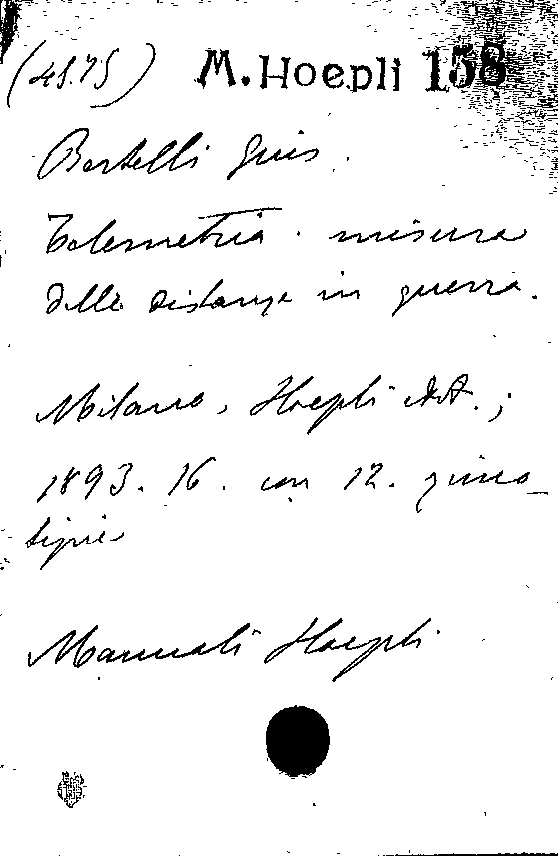 (4575) M. Hoepli 158
Bertelli Gius.
Telemetria. misura
delle distanze in guerra.
Milano, Hoepli edit.;
1893. 16. con 12. zinco_
tipie
Manuali Hoepli